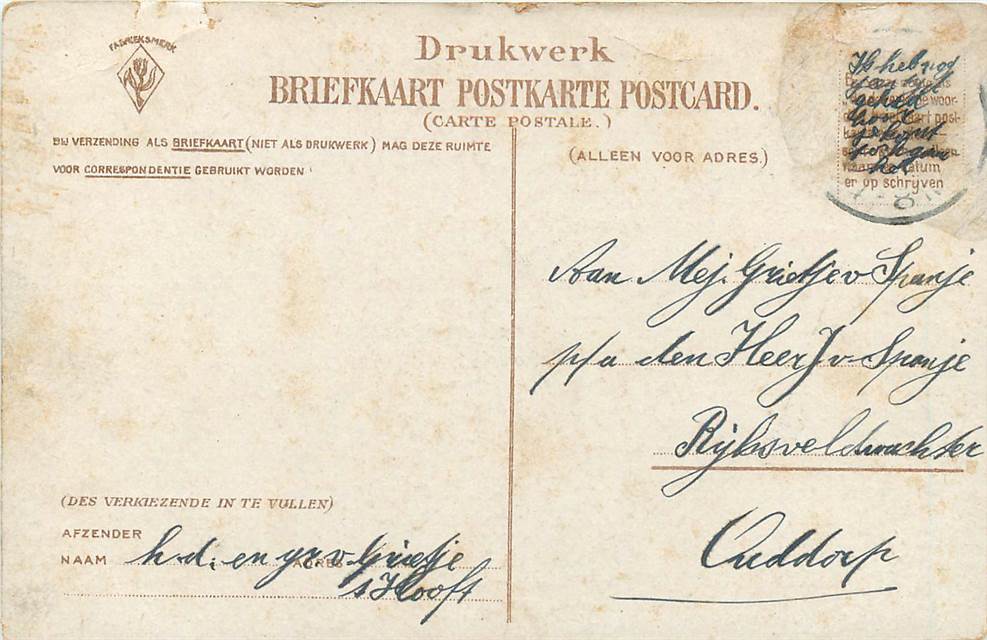 FABRIEKSMERK
Drukwerk
BRIEFKAART POSTKARTE POSTCARD.
(CARTE POSTALE.)
BIJ VERZENDING ALS BRIEFKAART (NIET ALS DRUKWERK) MAG DEZE RUIMTE
VOOR CORRESPONDENTIE GEBRUIKT WORDEN
(ALLEEN VOOR ADRES.)
Ik heb nog
er op schrijven
Aan Mej. Grietje v Spanje
p/a den Heer J v Spanje
Rijksveldwachter
Ouddorp
(DES VERKIEZENDE IN TE VULLEN)
AFZENDER
NAAM h.d. en gr v Grietje
ADRES
't Hooft